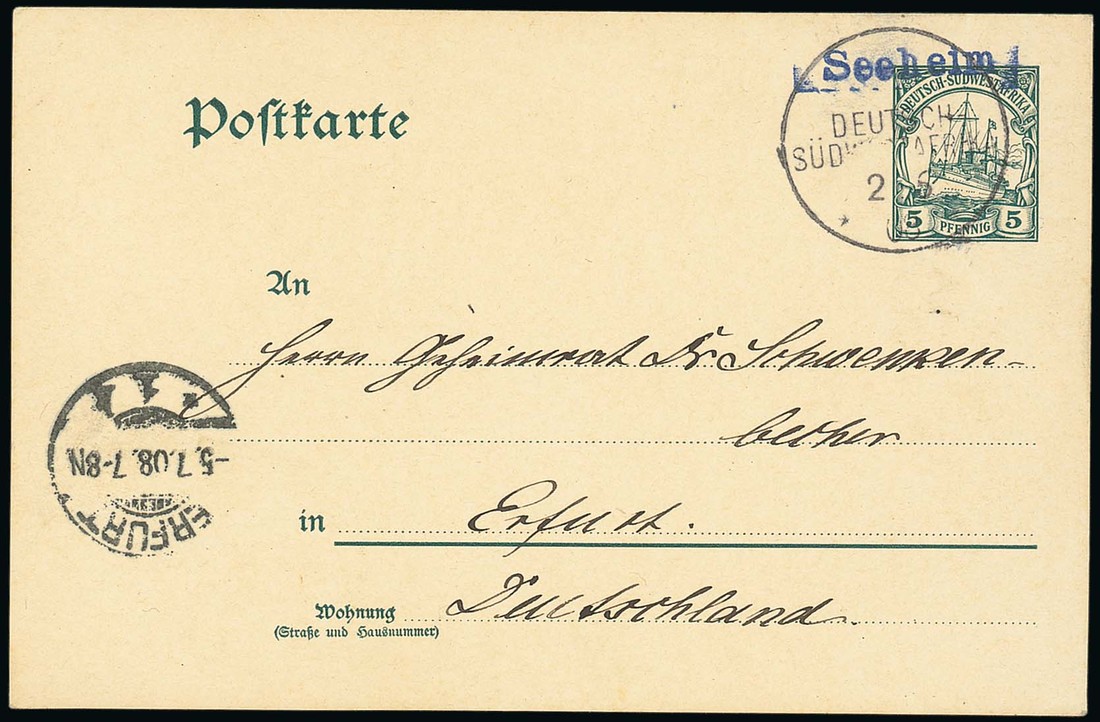 Seeheim
Postkarte
DEUTSCH-SÜDWESTAFRIKA
DEUTSCH
SÜDWESTAFRIKA
2 6
08
5 PFENNIG 5
An
Herrn Geheimrat Dr. Schwenken-
becher
in Erfurt.
Wohnung Deutschland.
(Straße und Hausnummer)
ERFURT
-5.7.08.7-8N.